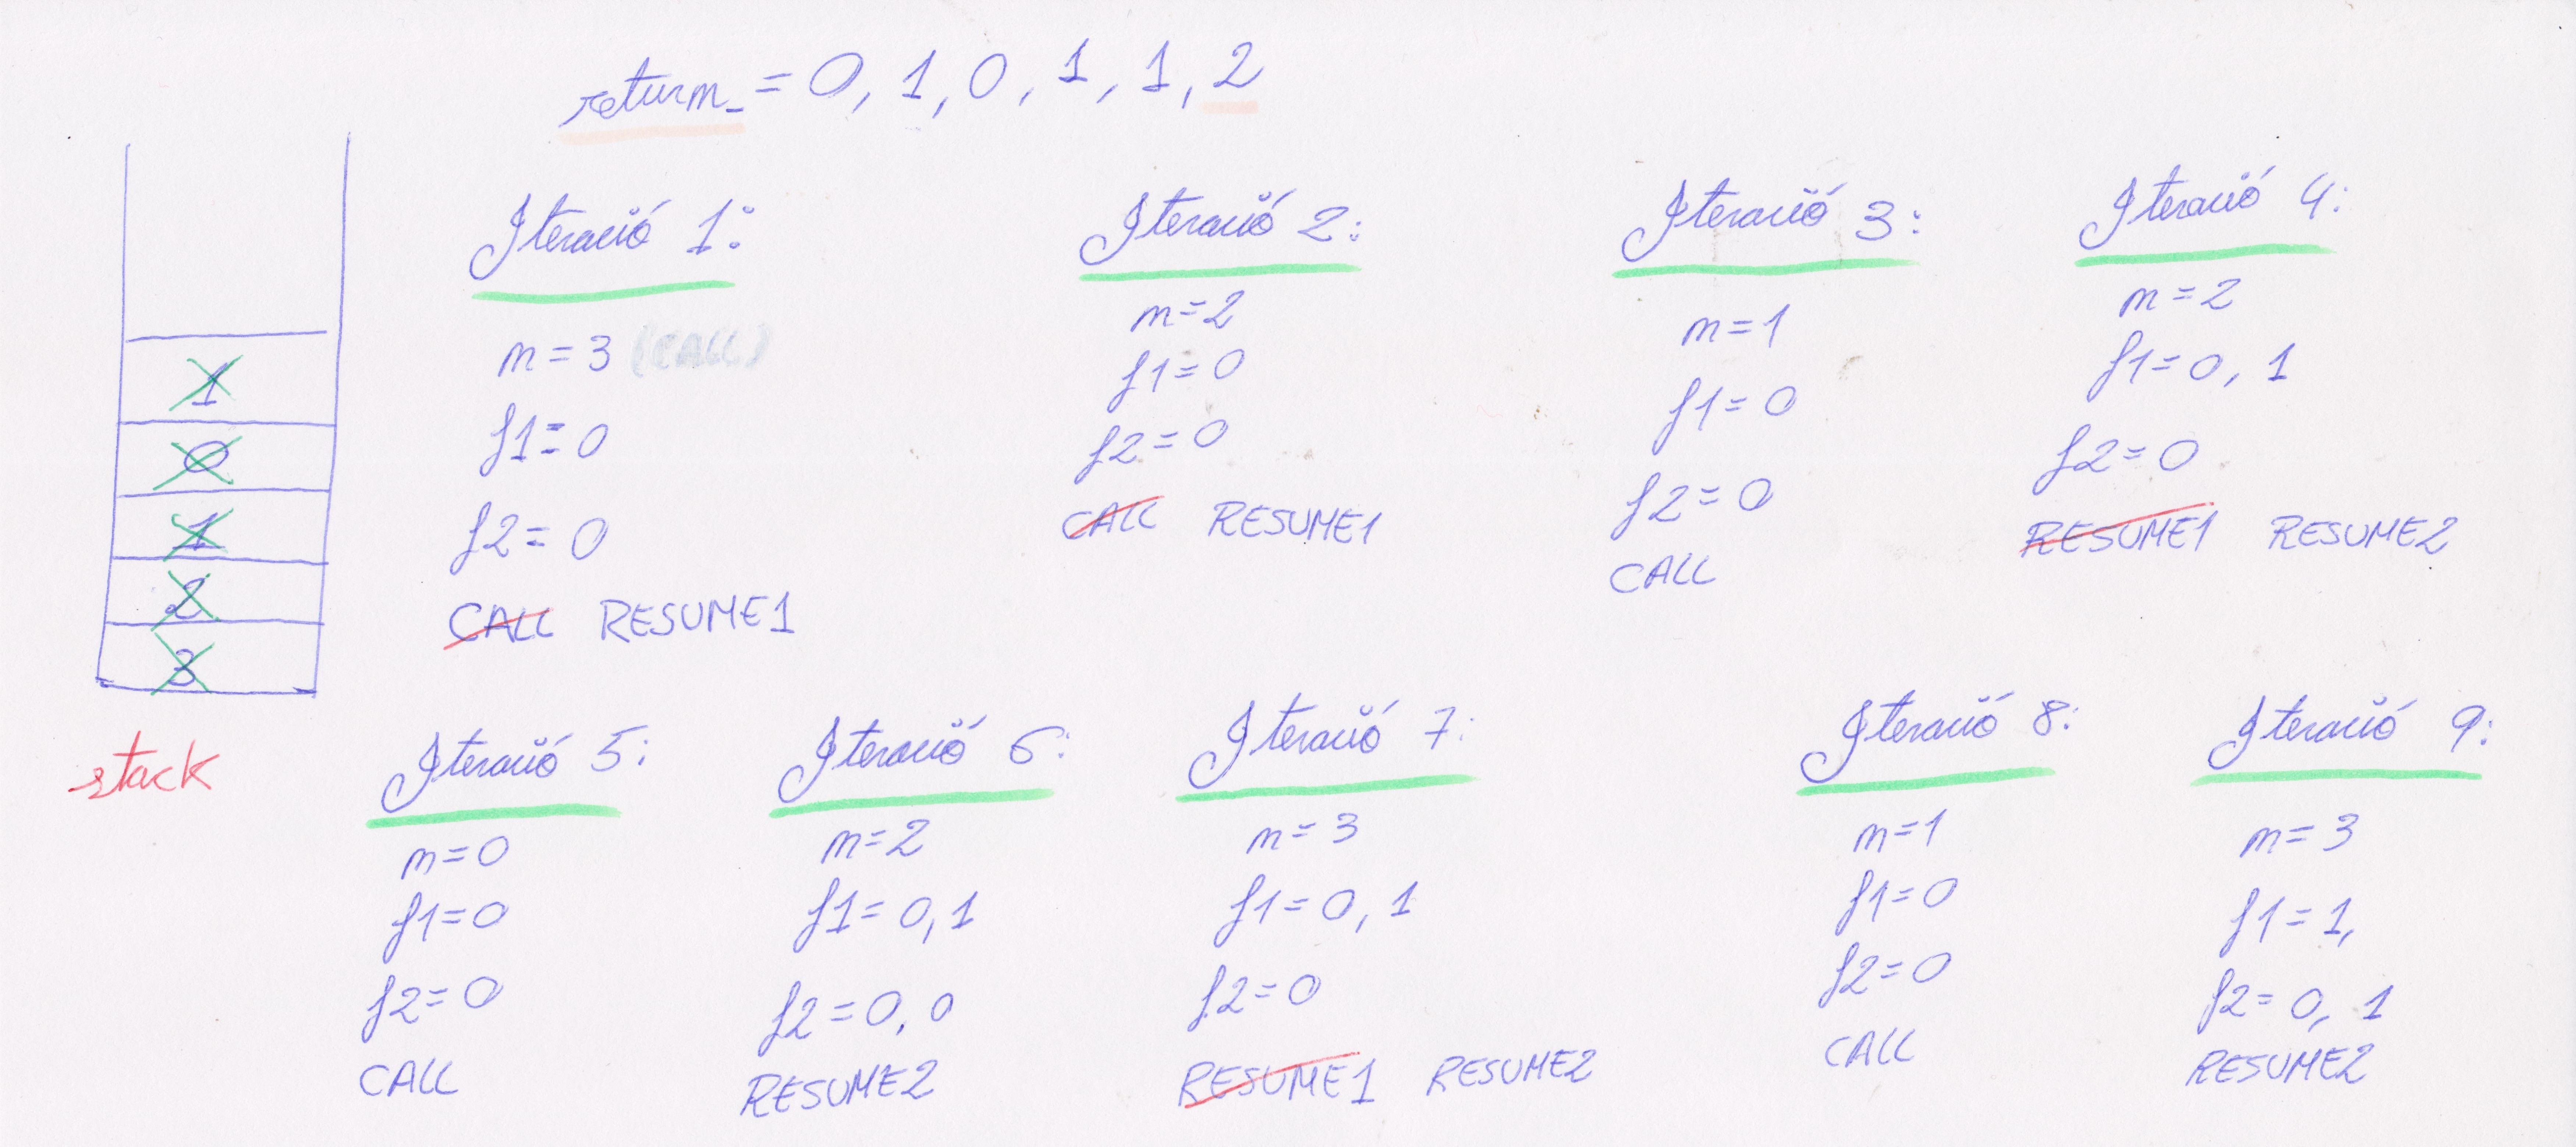 return_ = 0, 1, 0, 1, 1, 2
1
0
1
2
3
stack
Iteració 1:
n = 3 (CALL)
f1 = 0
f2 = 0
CALL RESUME1
Iteració 2:
n=2
f1=0
f2=0
CALL RESUME1
Iteració 3:
n=1
f1=0
f2=0
CALL
Iteració 4:
n=2
f1=0, 1
f2=0
RESUME1 RESUME2
Iteració 5:
n=0
f1=0
f2=0
CALL
Iteració 6:
n=2
f1= 0, 1
f2=0, 0
RESUME2
Iteració 7:
n=3
f1=0, 1
f2=0
RESUME1 RESUME2
Iteració 8:
n=1
f1=0
f2=0
CALL
Iteració 9:
n=3
f1=1,
f2= 0, 1
RESUME2